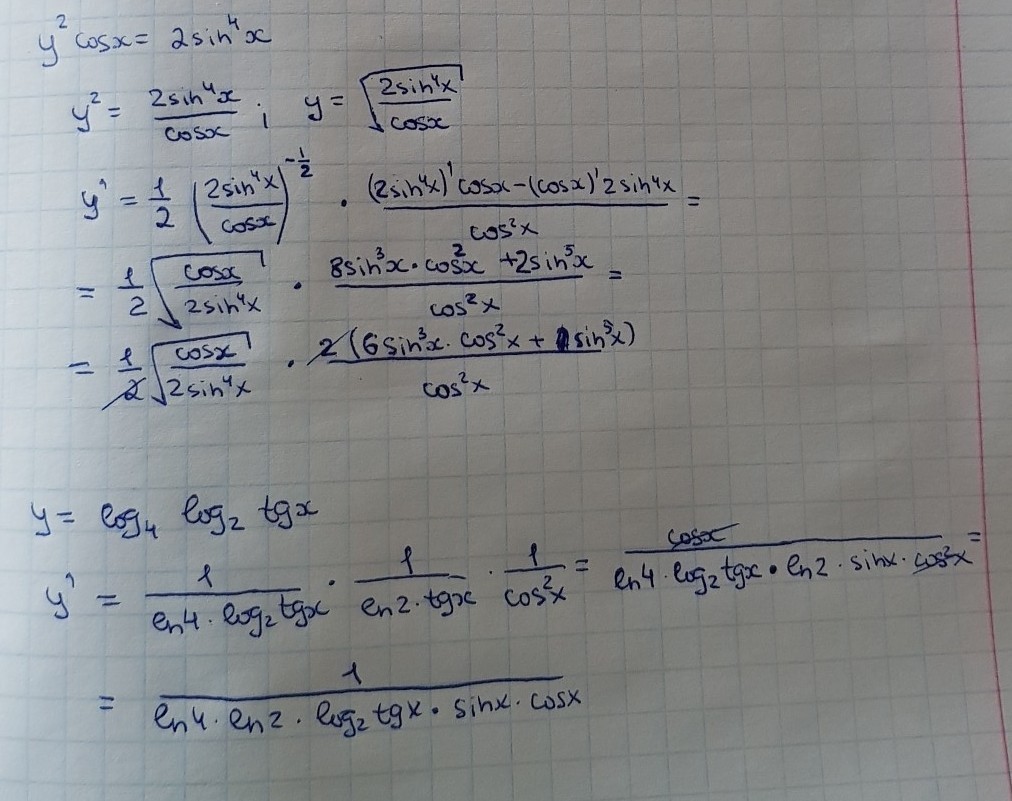 y² cosx = 2sin⁴x
y² = 2sin⁴x / cosx ; y = √(2sin⁴x / cosx)
y' = 1/2 (2sin⁴x / cosx)^(-1/2) · ((2sin⁴x)' cosx - (cosx)' 2sin⁴x) / cos²x =
= 1/2 √(cosx / 2sin⁴x) · (8sin³x · cos²x + 2sin⁵x) / cos²x =
= 1/2 √(cosx / 2sin⁴x) · 2(6sin³x · cos²x + sin⁵x) / cos²x
y = log₄ log₂ tgx
y' = 1 / (ln4 · log₂tgx) · 1 / (ln2 · tgx) · 1 / cos²x = cosx / (ln4 · log₂tgx · ln2 · sinx · cos²x) =
= 1 / (ln4 · ln2 · log₂tgx · sinx · cosx)